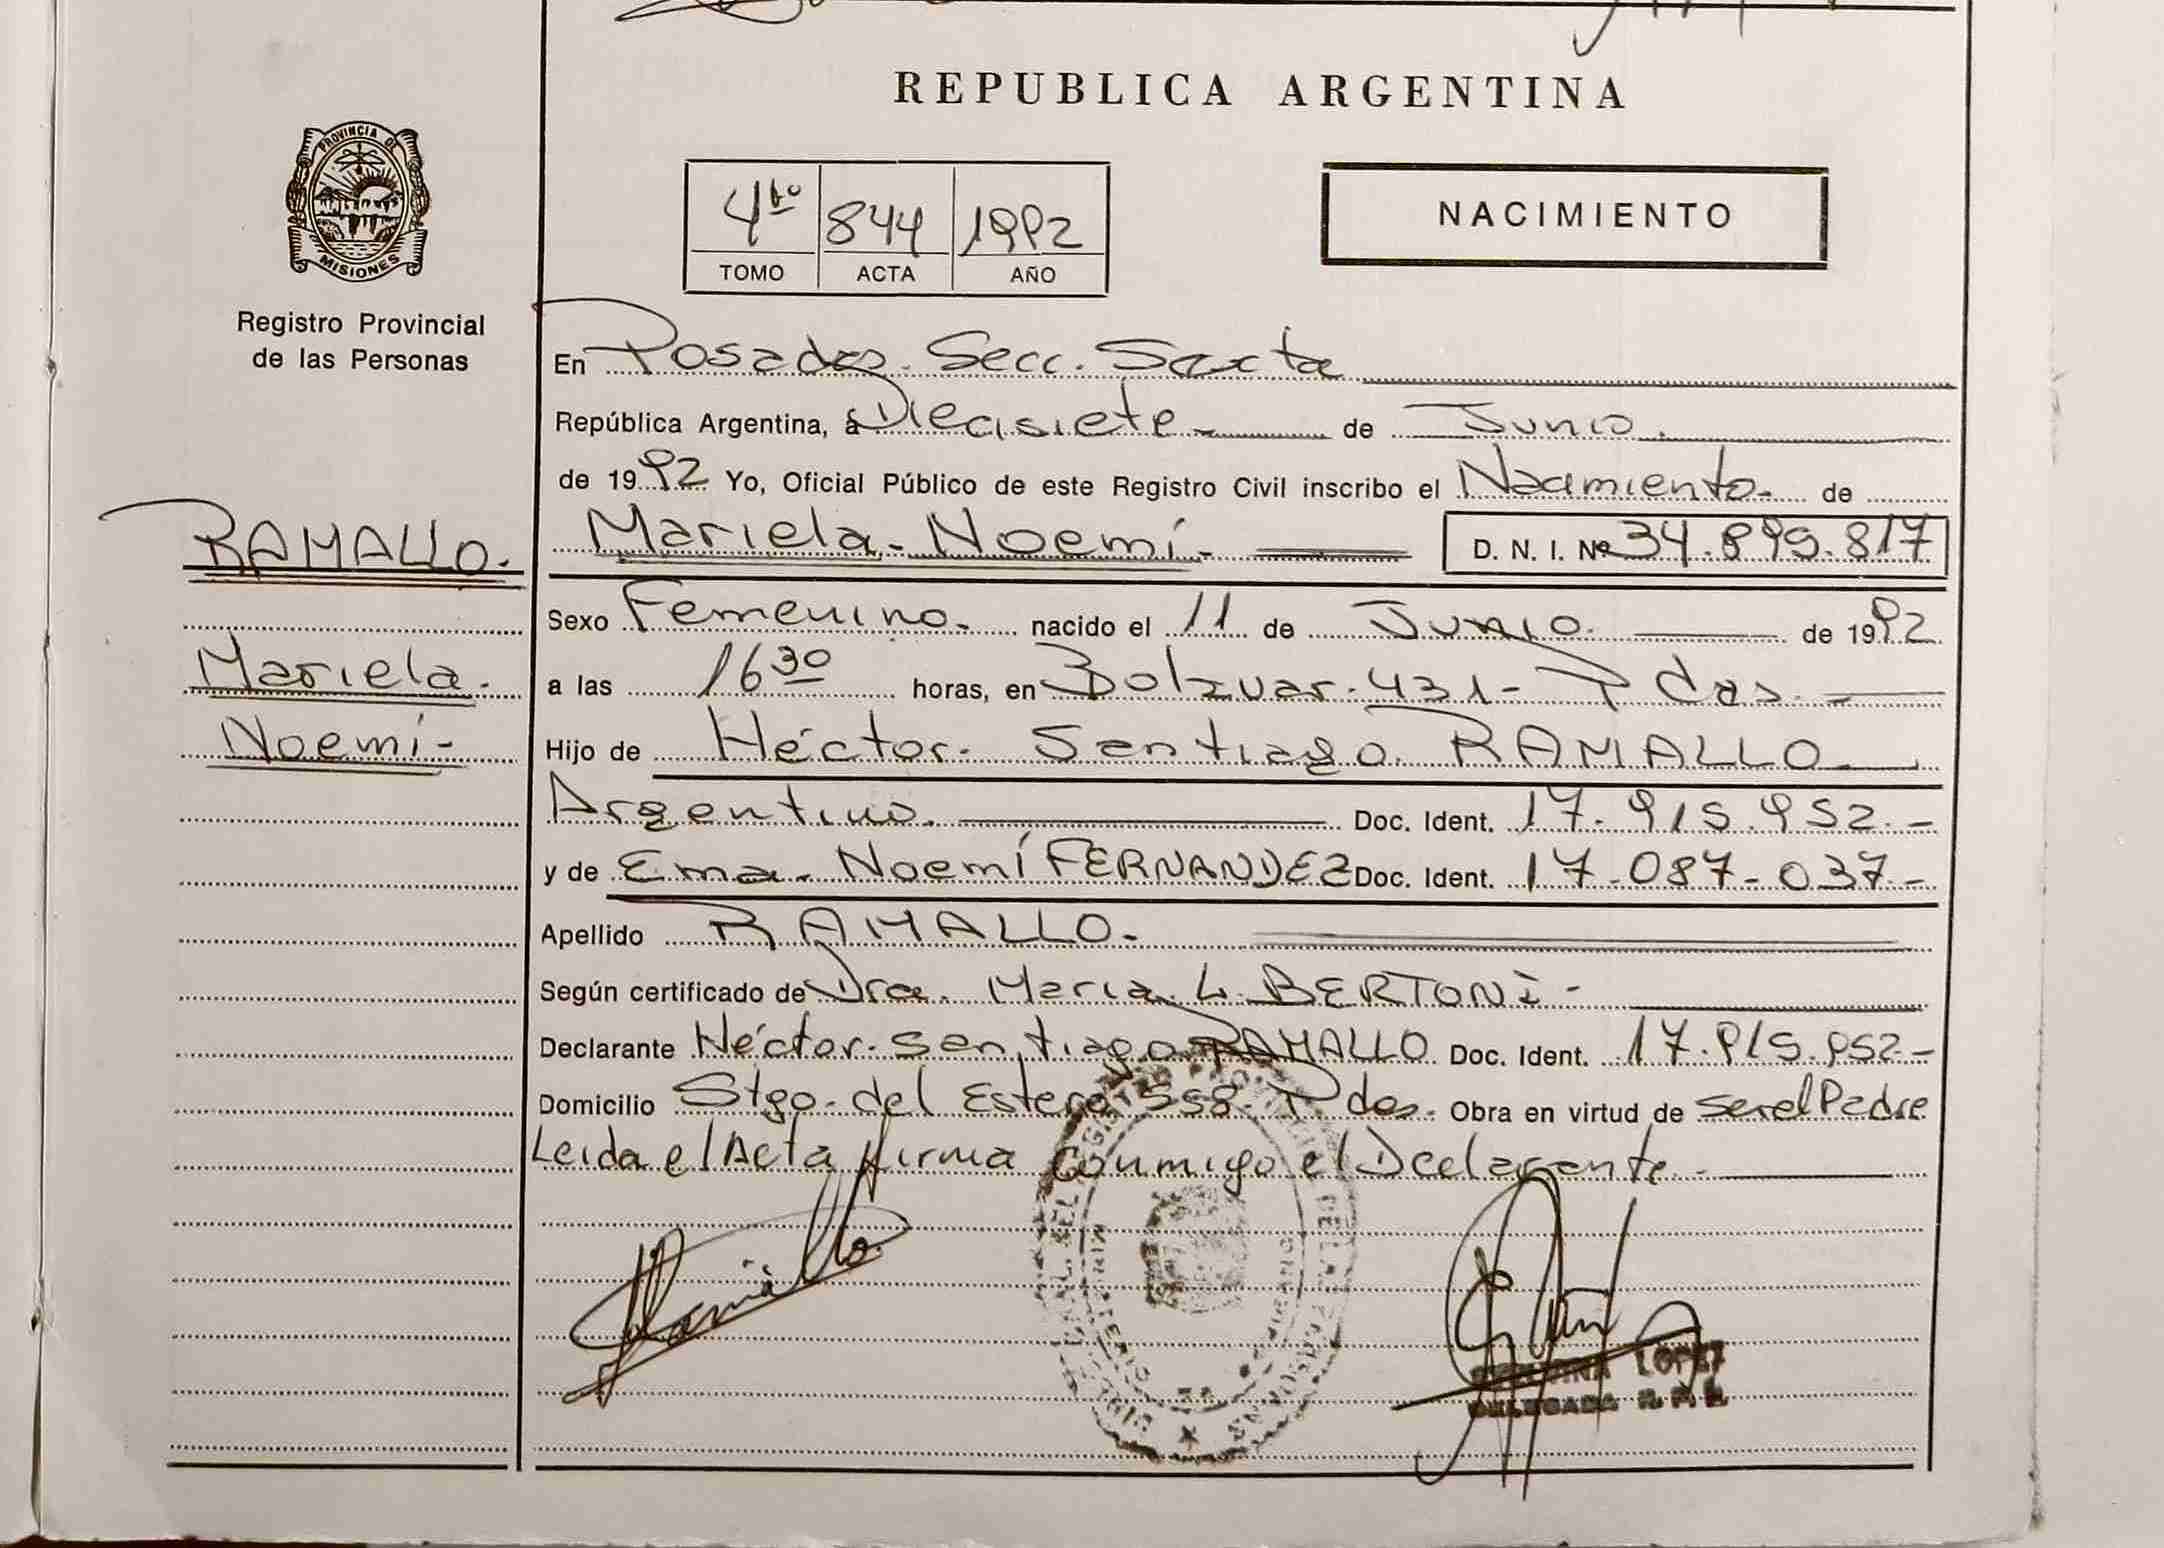 REPUBLICA ARGENTINA
PROVINCIA DE
MISIONES
Registro Provincial
de las Personas
4to 844 1992
TOMO ACTA AÑO
NACIMIENTO
En Posadas. Secc. Sexta
República Argentina, a Diecisiete de Junio.
de 1992 Yo, Oficial Público de este Registro Civil inscribo el Nacimiento. de
RAMALLO.
Mariela
Noemí
Mariela. Noemí D. N. I. Nº 34.899.817
Sexo Femenino. nacido el 11 de Junio. de 1992
a las 16 30 horas, en Bolivar. 431- Pdas.
Hijo de Héctor. Santiago. RAMALLO
Argentino. Doc. Ident. 17.915.952.-
y de Ema. Noemí FERNANDEZ Doc. Ident. 17.087.037-
Apellido RAMALLO.
Según certificado de Dra. María L. BERTONI-
Declarante Héctor. Santiago RAMALLO Doc. Ident. 17.915.952-
Domicilio Stgo. del Estero 558. Pdas. Obra en virtud de ser el Padre
Leida el Acta firma conmigo el Declarante.
Ramallo
LOPEZ
DELEGADA R. P. P.